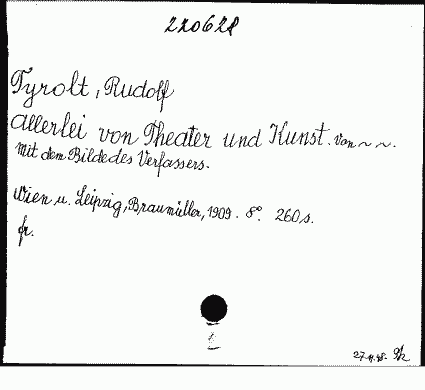 220628
Tyrolt, Rudolf
Allerlei von Theater und Kunst. Von ~ ~.
Mit dem Bilde des Verfassers.
Wien u. Leipzig, Braumüller, 1909. 8°. 260 s.
fr.